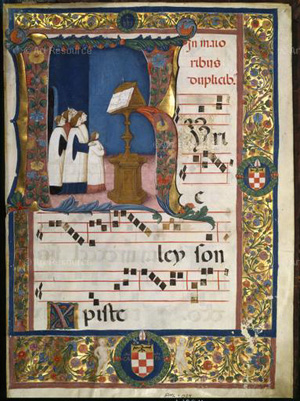 In maio
ribus
duplicib:
Kyri
e
ley son
Xpiste